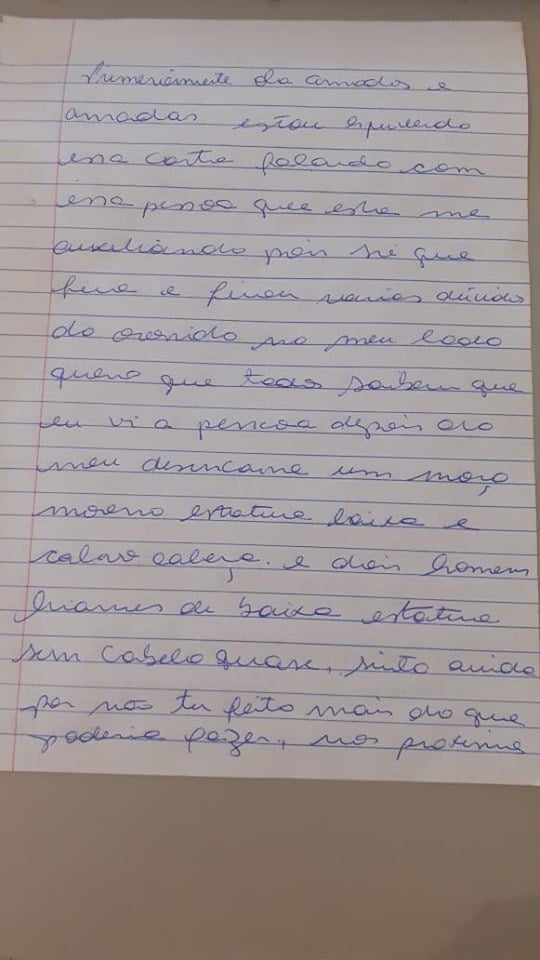 Primeriamente da amados e
amadas estou
essa carta falando com
essa pessoa que esta me
auxiliando pois si que
fica e ficou varias
do ocorrido no meu lado
quero que todos saibam que
eu vi a pencoa depois do
meu desencarne um moço
moreno estatura baixa e
calvo cabeça. e dois homem
de baixa estatura
sem cabelo quase, sinto ainda
por não ter feito mais do que
poderia fazer, nos proxima